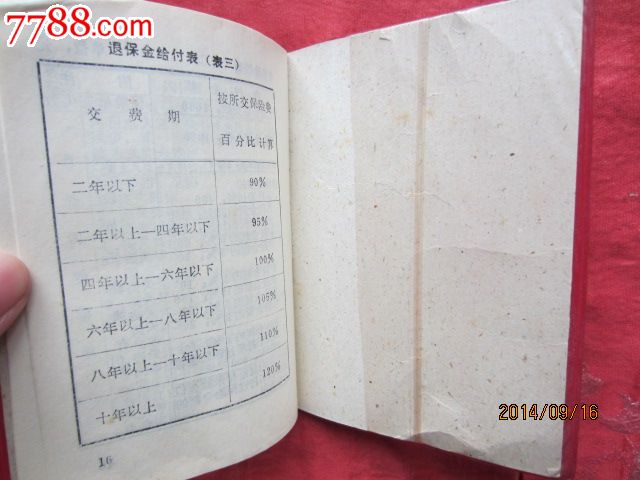 7788.com
退保金给付表（表三）
交费期 按所交保险费
百分比计算
二年以下 90%
二年以上—四年以下 95%
四年以上—六年以下 100%
六年以上—八年以下 105%
八年以上—十年以下 110%
十年以上 120%
16
2014/09/16